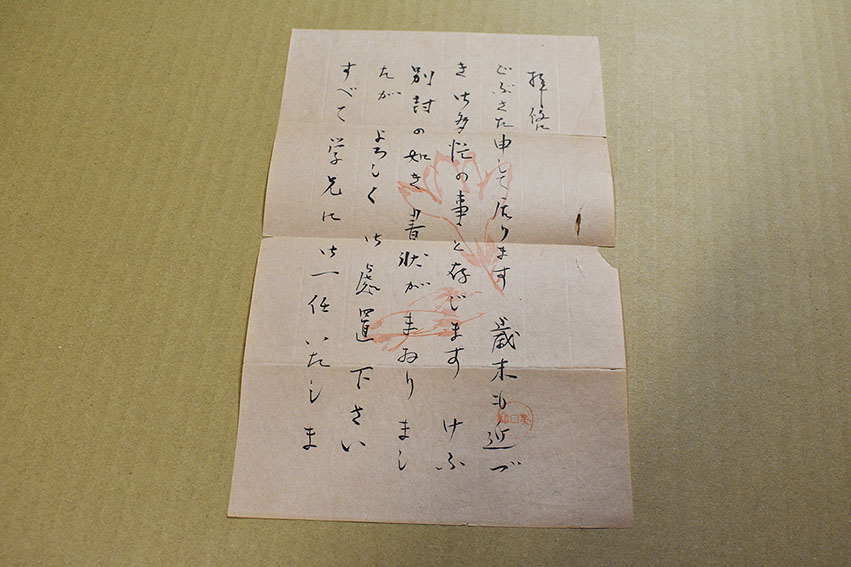 拝啓
ごぶさた申して居ります 歳末も近づ
き御多忙の事と存じます けふ
別封の如き書状がまゐりまし
たが よろしく御處置下さい
すべて学兄に御一任いたしま